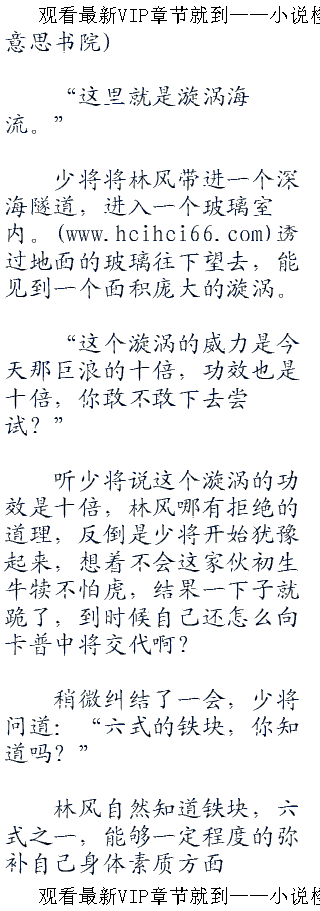 观看最新VIP章节就到——小说
意思书院)
“这里就是漩涡海
流。”
少将将林风带进一个深
海隧道，进入一个玻璃室
内。(www.hcihci66.com)透
过地面的玻璃往下望去，能
见到一个面积庞大的漩涡。
“这个漩涡的威力是今
天那巨浪的十倍，功效也是
十倍，你敢不敢下去尝
试？”
听少将说这个漩涡的功
效是十倍，林风哪有拒绝的
道理，反倒是少将开始犹豫
起来，想着不会这家伙初生
牛犊不怕虎，结果一下子就
跪了，到时候自己还怎么向
卡普中将交代啊？
稍微纠结了一会，少将
问道：“六式的铁块，你知
道吗？”
林风自然知道铁块，六
式之一，能够一定程度的弥
补自己身体素质方面
观看最新VIP章节就到——小说